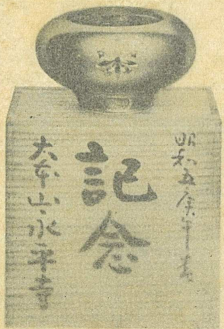 昭和五庚午春
記念
大本山永平寺